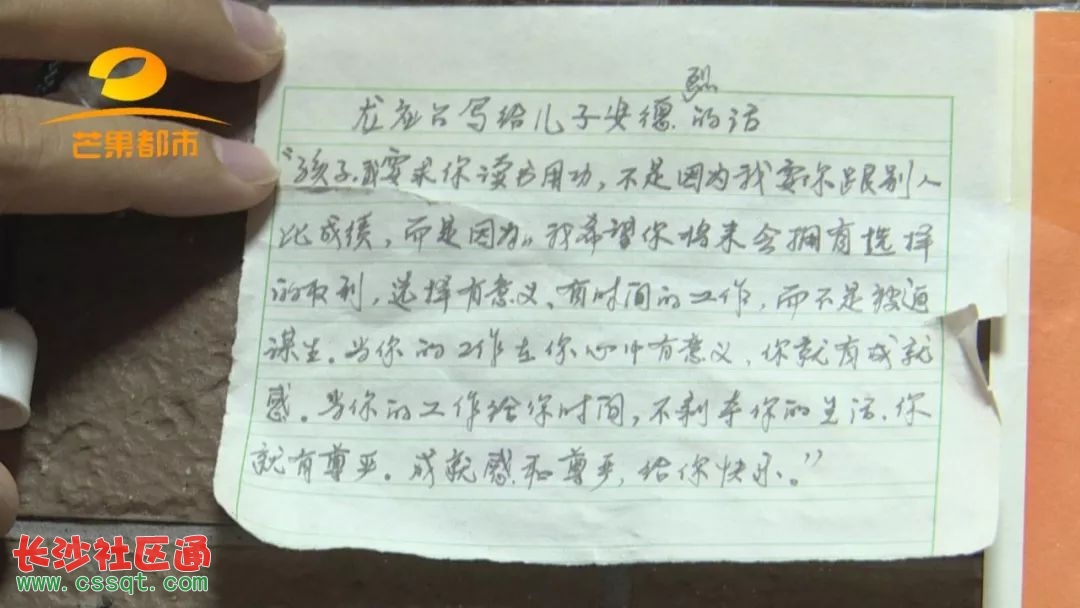 芒果都市
烈
龙应台写给儿子安德的话
“孩子,我要求你读书用功,不是因为我要你跟别人
比成绩,而是因为,我希望你将来会拥有选择
的权利,选择有意义、有时间的工作,而不是被迫
谋生。当你的工作在你心中有意义,你就有成就
感。当你的工作给你时间,不剥夺你的生活,你
就有尊严。成就感和尊严,给你快乐。”
长沙社区通
www.cssqt.com